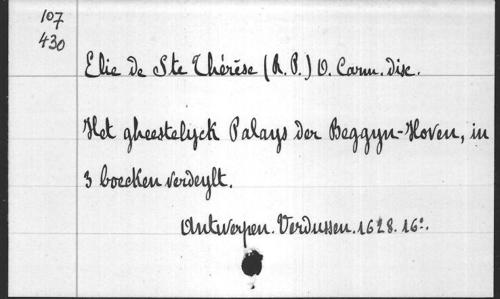 107
430
Elie de Ste Thérèse (R. P.) O. Carm. disc.
Het gheestelyck Palays der Beggyn-Hoven, in
3 boecken verdeylt.
Antwerpen. Verdussen. 1628. 16º.